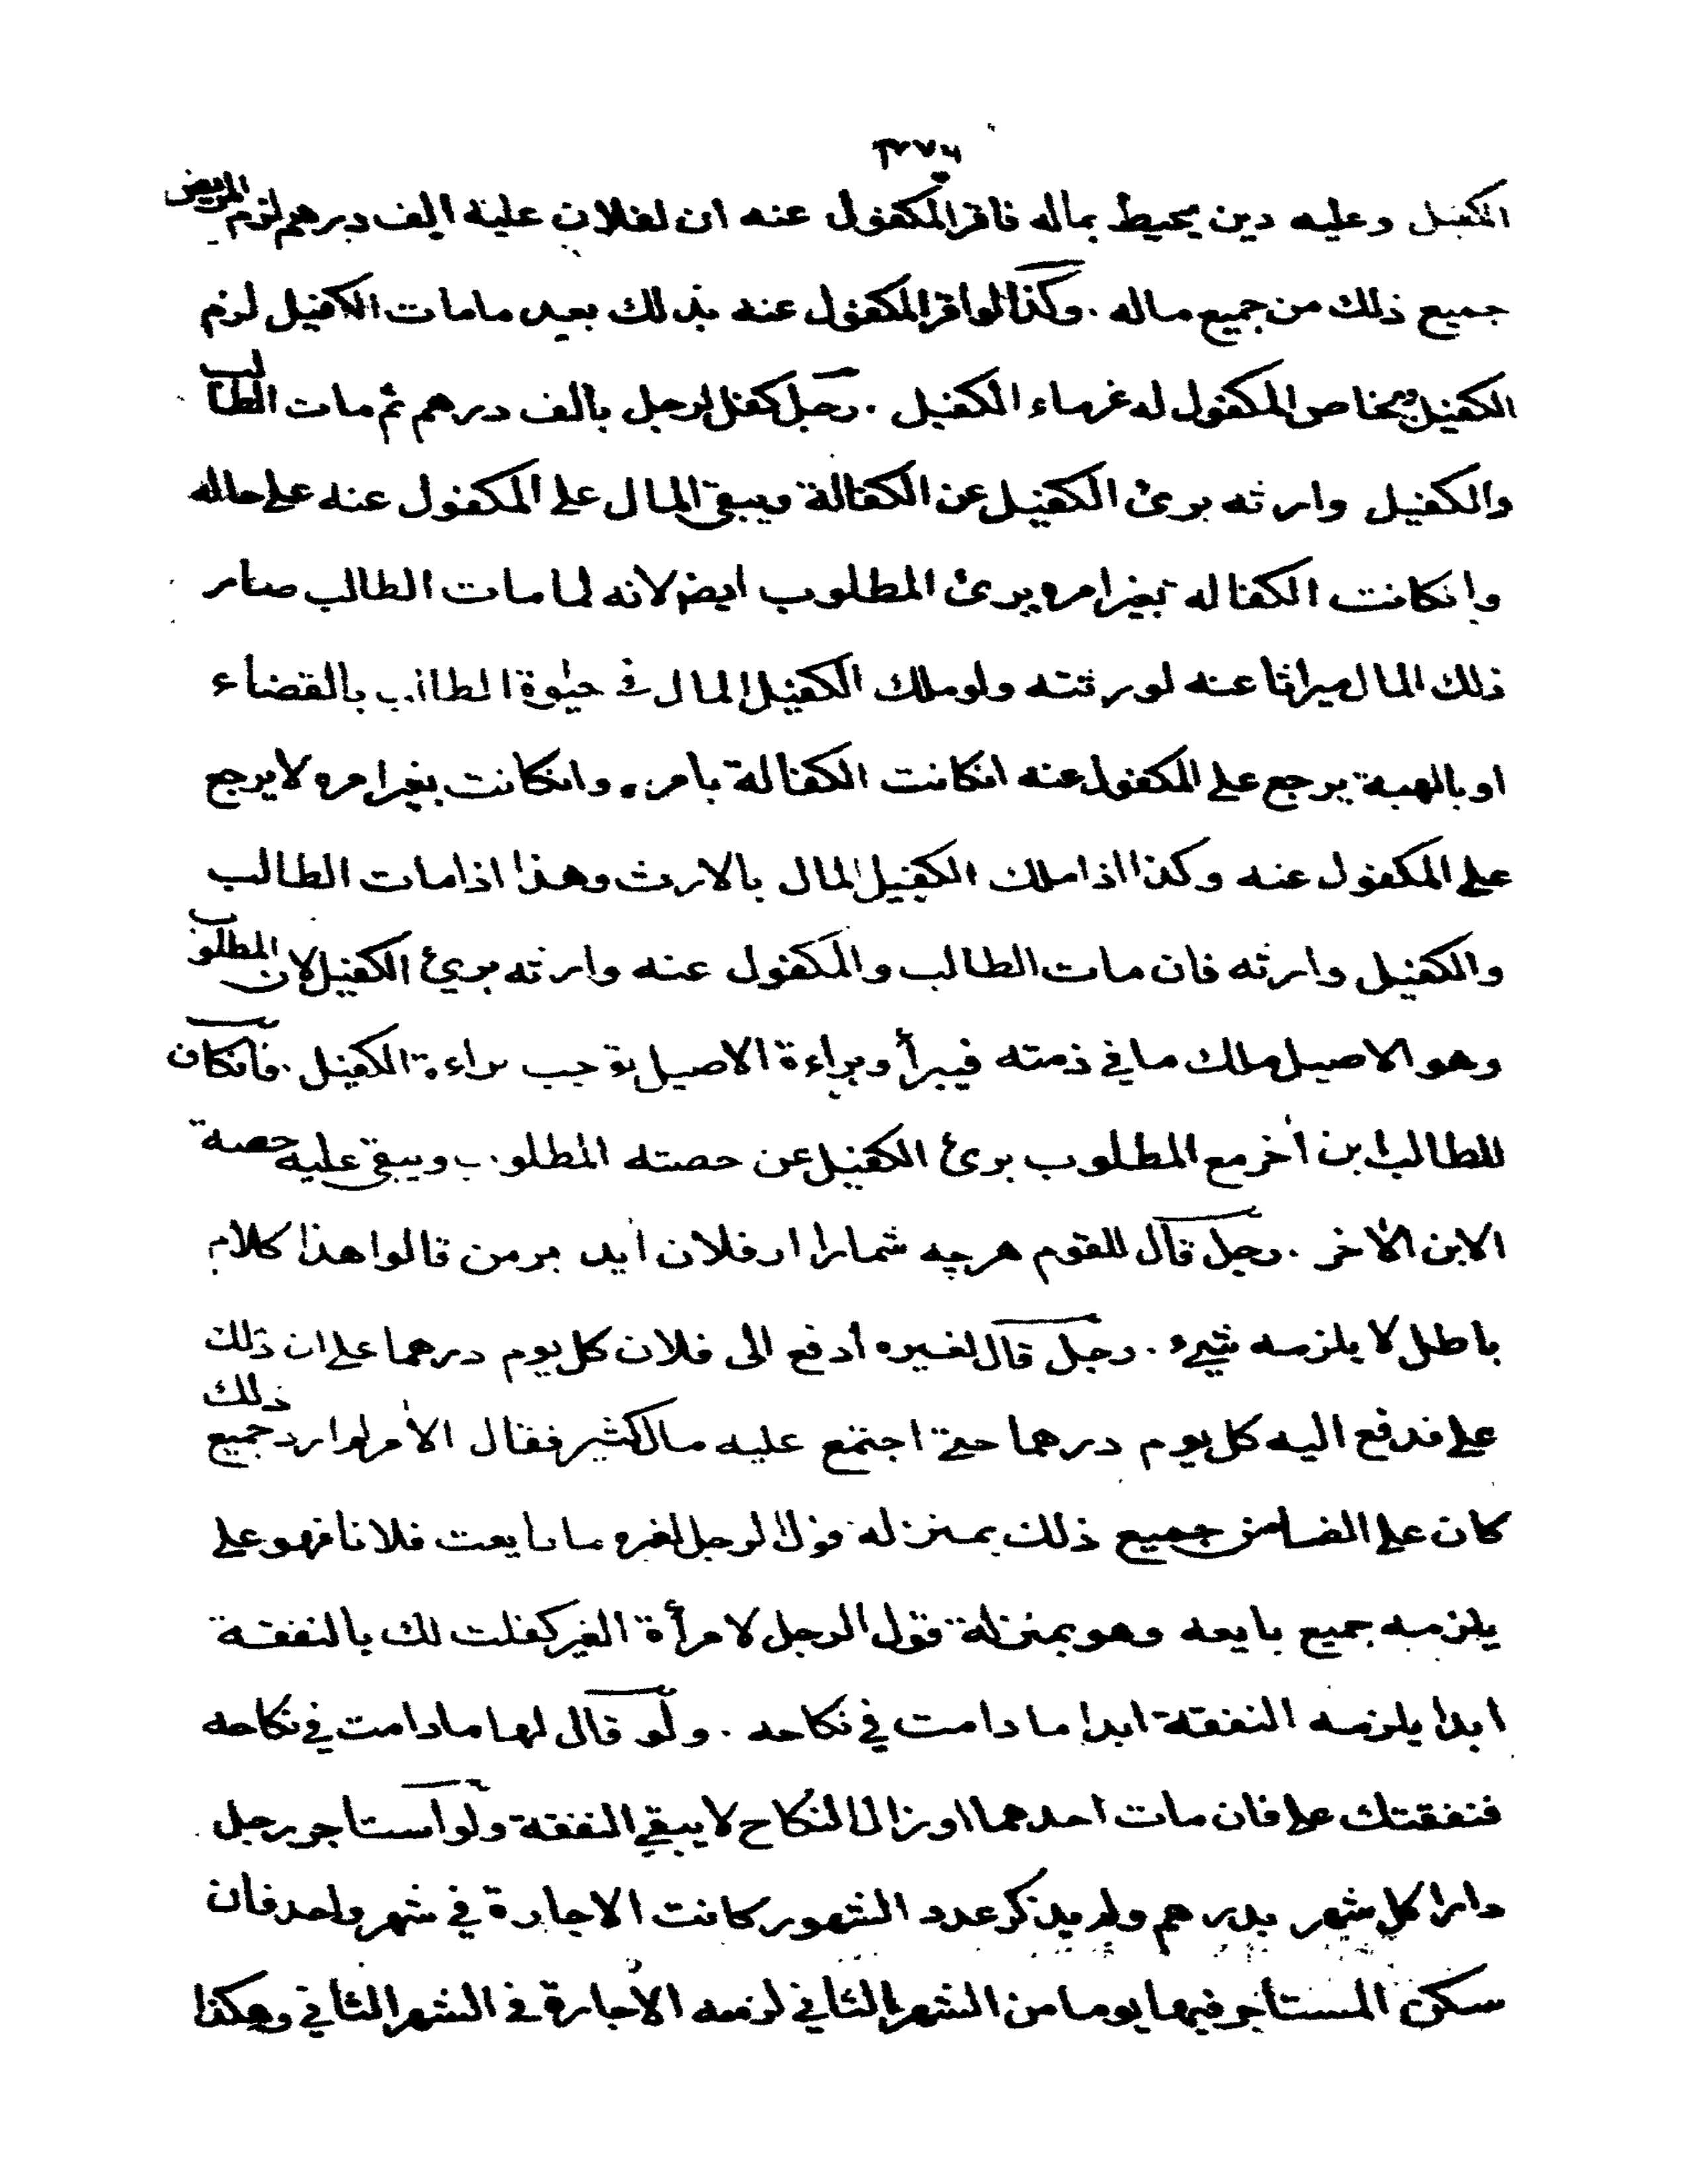 ٣٧٧
الكفيل وعليه دين يحيط بماله فاقر المكفول عنه ان لفلان عليه الف درهم لزم المريض
جميع ذلك من جميع ماله . وكذا لو اقر المكفول عنه بذلك بعد ما مات الكفيل لزم
الكفيل ويخاص المكفول له غرماء الكفيل . رجل كفل لرجل بالف درهم ثم مات الطالب
والكفيل وارثه برئ الكفيل عن الكفالة ويبقى المال على المكفول عنه على حاله
وانكانت الكفاله بغير امره برئ المطلوب ايضا لانه لما مات الطالب صار
ذلك المال ميراثا عنه لورثته ولو ملك الكفيل المال في حيوة الطالب بالقضاء
او بالهبة يرجع على المكفول عنه انكانت الكفالة بامره وانكانت بغير امره لا يرجع
على المكفول عنه وكذا اذا ملك الكفيل المال بالارث وهذا اذا مات الطالب
والكفيل وارثه فان مات الطالب والمكفول عنه وارثه برئ الكفيل لان المطلوب
وهو الاصيل ملك ما في ذمته فيبرأ وبراءة الاصيل توجب براءة الكفيل . فانكان
للطالب ابن أخر مع المطلوب برئ الكفيل عن حصته المطلوب ويبقى عليه حصة
الابن الأخر . رجل قال للقوم هرچه شمارا از فلان أيد بر من قالوا هذا كلام
باطل لا يلزمه شيء . رجل قال لغيره أدفع الى فلان كل يوم درهما على ان ذلك
على فدفع اليه كل يوم درهما حتى اجتمع عليه مال كثير فقال الأمر لم ارد جميع ذلك
كان على الضامن جميع ذلك بمنزله قول الرجل لغيره ما بايعت فلانا فهو على
يلزمه جميع بايعه وهو بمنزلة قول الرجل لامرأة الغير كفلت لك بالنفقة
ابدا يلزمه النفقة ابدا ما دامت في نكاحه . ولو قال لها مادامت في نكاحه
فنفقتك على فان مات احدهما او زال النكاح لا يبقى النفقة ولو استاجر رجل
دارا كل شهر بدرهم ولم يذكر عدد الشهور كانت الاجارة في شهر واحد فان
سكن المستاجر فيها يوما من الشهر الثاني لزمه الأجارة في الشهر الثاني وهكذا